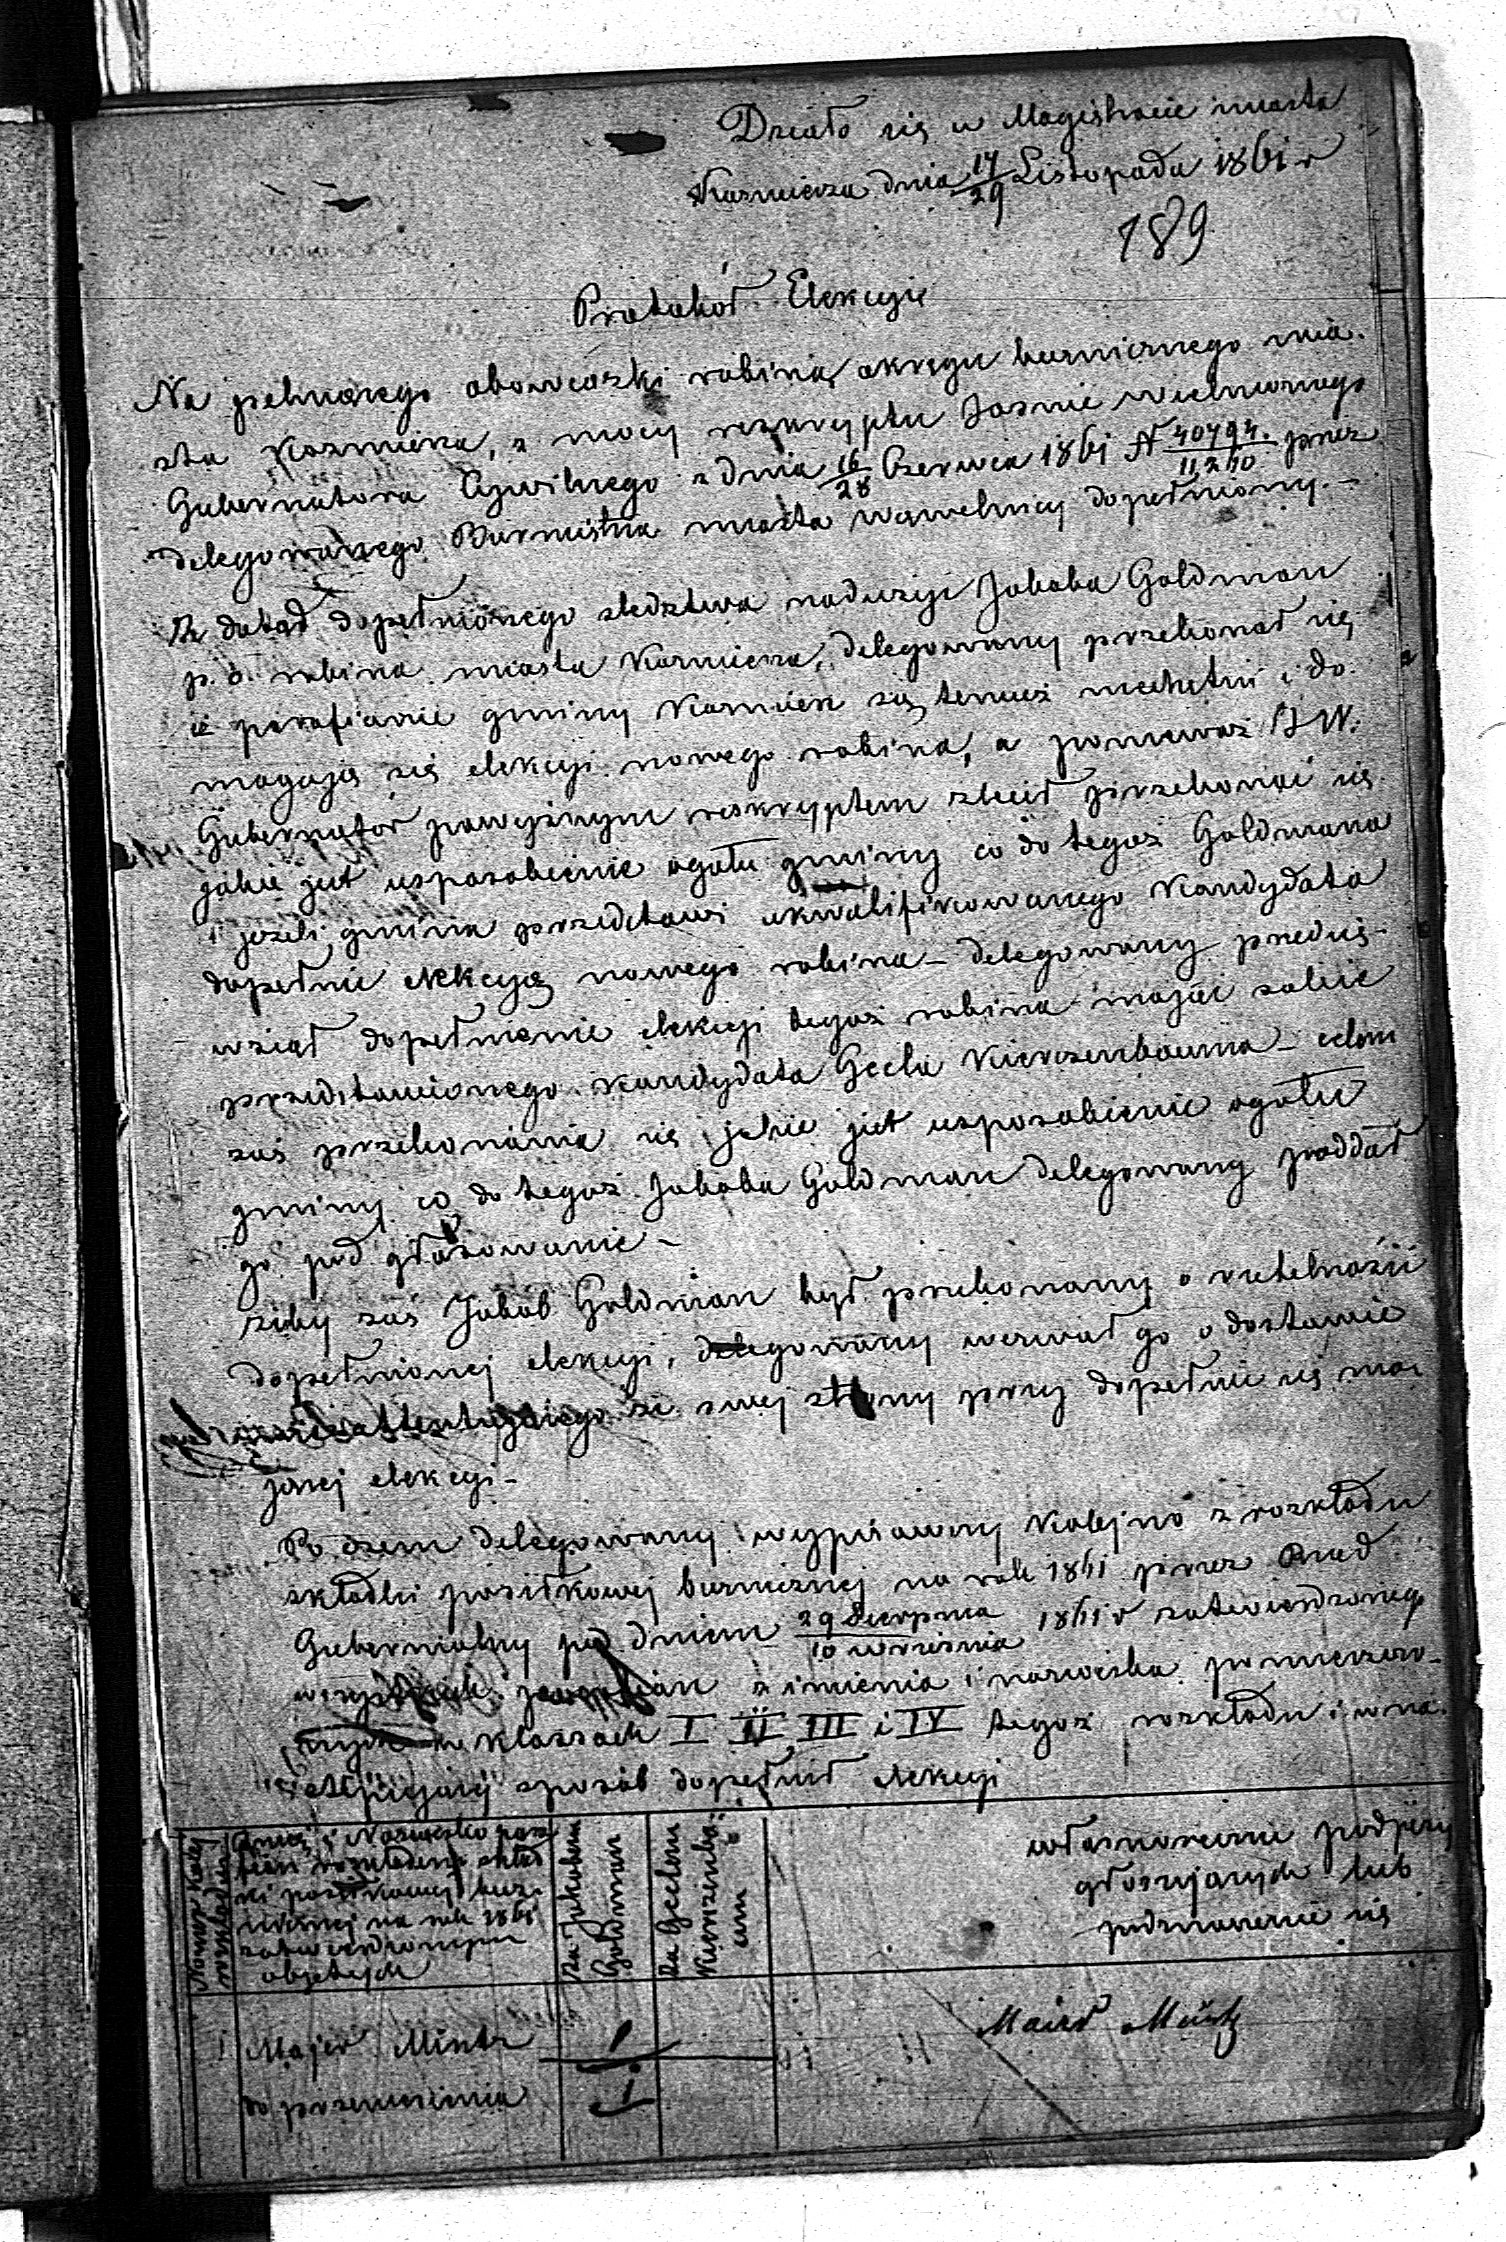 Działo się w Magistracie miasta
Kazmierza dnia 17/29 Listopada 1861 r
189
Protokół Elekcyi
Na pełniącego obowiązki rabina okręgu bużnicznego mia-
sta Kazmierza, z mocy reskryptu Jaśnie Wielmożnego
Gubernatora Cywilnego z dnia 16/28 Czerwca 1861 N 40794/11,210 przez
delegowanego Burmistrza miasta Wąwolnicy dopełniony.-
Ze dotąd dopełnionego śledztwa nadużyć Jakóba Goldman
p. o. rabina miasta Kazmierza, delegowany przekonał się
iż parafianie gminy Kazmierz są temuż niechętni i do-
magają się elekcyi nowego rabina, a ponieważ JW.
Gubernator powyższym reskryptem zlecił przekonać się
jakie jest usposobienie ogółu gminy co do tegoż Goldmana
i jeżeli gmina przedstawi ukwalifikowanego Kandydata
dopełnić elekcyą nowego rabina - delegowany przedsię-
wziął dopełnienie elekcyi tegoż rabina mając sobie
przedstawionego Kandydata Gecla Kierszenbauma - celem
zaś przekonania się jakie jest usposobienie ogółu
gminy co do tegoż Jakóba Goldman delegowany poddał
go pod głosowanie -
żeby zaś Jakób Goldman był przekonany o rzetelności
dopełnionej elekcyi, delegowany wezwał go o dostawie
ze swej strony przy dopełnić się ma-
jącej elekcyi -
Po czem delegowany wypisawszy Kolejno z rozkładu
składki posiłkowej bużnicznej na rok 1861 przez Rząd
Gubernialny pod dniem 29 Sierpnia/10 września 1861 r zatwierdzonego
wszystkich parafian z imienia i nazwiska pomieszczo-
nych w Klassach I II III i IV tegoż rozkładu i w na-
stępujący sposób dopełnił elekcyi
Numer Kolej rozkładu
Imię i Nazwisko para-
fian rozkładem skład-
ki posiłkowej buż-
nicznej na rok 1861
zatwierdzonym
objętych
Za Jakubem
Goldman
Za Geclem
Kierszenba-
um
własnoręczne podpisy
głosujących lub
podznaczenie się
1 Majer Mintz 1 Maier Mintz
do przeniesienia 1